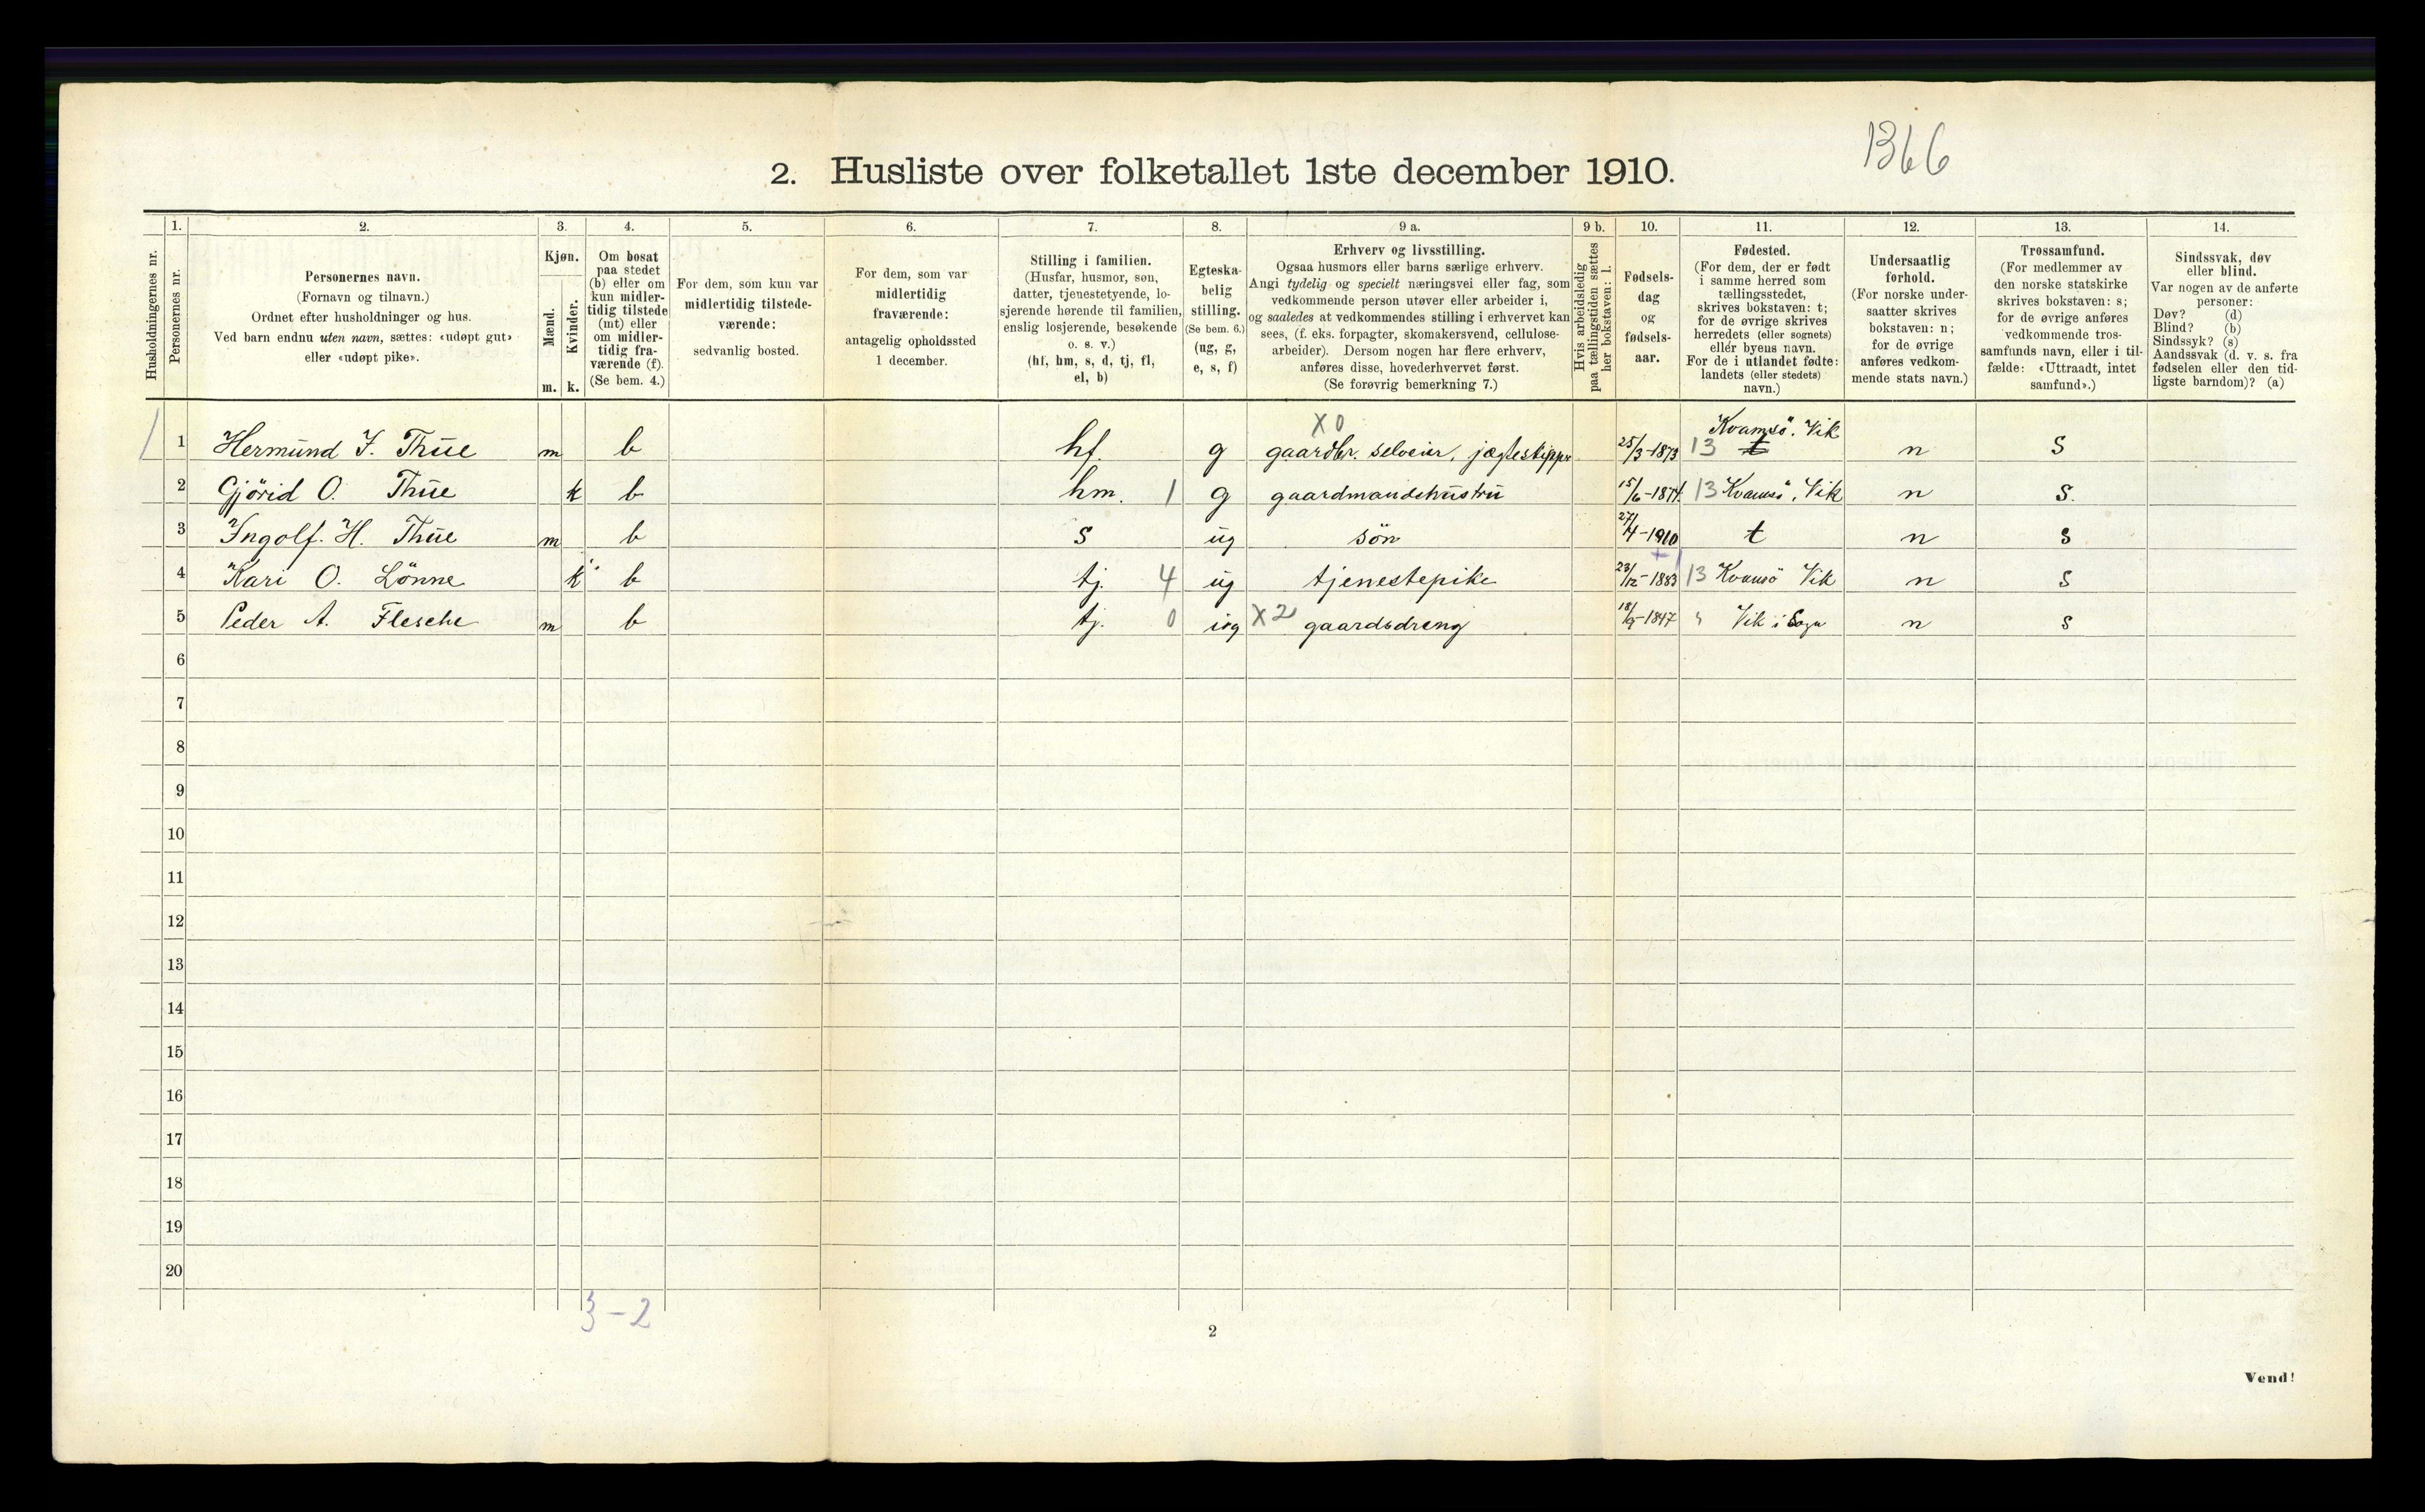 1366
2. Husliste over folketallet 1ste december 1910.
1. 2. 3. 4. 5. 6. 7. 8. 9 a. 9 b. 10. 11. 12. 13. 14.
Husholdningernes nr.
Personernes nr.
Personernes navn.
(Fornavn og tilnavn.)
Ordnet efter husholdninger og hus.
Ved barn endnu uten navn, sættes: «udøpt gut»
eller «udøpt pike».
Kjøn.
Mænd.
Kvinder.
m. k.
Om bosat
paa stedet
(b) eller om
kun midler-
tidig tilstede
(mt) eller
om midler-
tidig fra-
værende (f).
(Se bem. 4.)
For dem, som kun var
midlertidig tilstede-
værende:
sedvanlig bosted.
For dem, som var
midlertidig
fraværende:
antagelig opholdssted
1 december.
Stilling i familien.
(Husfar, husmor, søn,
datter, tjenestetyende, lo-
sjerende hørende til familien,
enslig losjerende, besøkende
o. s. v.)
(hf, hm, s, d, tj, fl,
el, b)
Egteska-
belig
stilling.
(Se bem. 6.)
(ug, g,
e, s, f)
Erhverv og livsstilling.
Ogsaa husmors eller barns særlige erhverv.
Angi tydelig og specielt næringsvei eller fag, som
vedkommende person utøver eller arbeider i,
og saaledes at vedkommendes stilling i erhvervet kan
sees, (f. eks. forpagter, skomakersvend, cellulose-
arbeider). Dersom nogen har flere erhverv,
anføres disse, hovederhvervet først.
(Se forøvrig bemerkning 7.)
Hvis arbeidsledig
paa tællingstiden sættes
her bokstaven: l.
Fødsels-
dag
og
fødsels-
aar.
Fødested.
(For dem, der er født
i samme herred som
tællingsstedet,
skrives bokstaven: t;
for de øvrige skrives
herredets (eller sognets)
eller byens navn.
For de i utlandet fødte:
landets (eller stedets)
navn.)
Undersaatlig
forhold.
(For norske under-
saatter skrives
bokstaven: n;
for de øvrige
anføres vedkom-
mende stats navn.)
Trossamfund.
(For medlemmer av
den norske statskirke
skrives bokstaven: s;
for de øvrige anføres
vedkommende tros-
samfunds navn, eller i til-
fælde: «Uttraadt, intet
samfund».)
Sindssvak, døv
eller blind.
Var nogen av de anførte
personer:
Døv? (d)
Blind? (b)
Sindssyk? (s)
Aandssvak (d. v. s. fra
fødselen eller den tid-
ligste barndom)? (a)
X 0 Kvamsö. Vik
1 1 Hermund J. Thue m b hf. g gaardbr. selveier, jægteskipper 25/3-1873 13 t n S
2 Gjörid O. Thue k b hm. 1 g gaardmandshustru 15/6-1874 13 Kvamsö, Vik n S.
3 Ingolf. H. Thue m b s ug sön 27/4-1910 t n s
4 Kari O. Lönne k b tj. 4 ug tjenestepike 23/12-1883 13 Kvamsö Vik n s
5 Peder A. Flesche m b tj. 0 ug X2 gaardsdreng 18/9-1847 " Vik i Sogn n s
6
7
8
9
10
11
12
13
14
15
16
17
18
19
20
3-2
2
Vend!